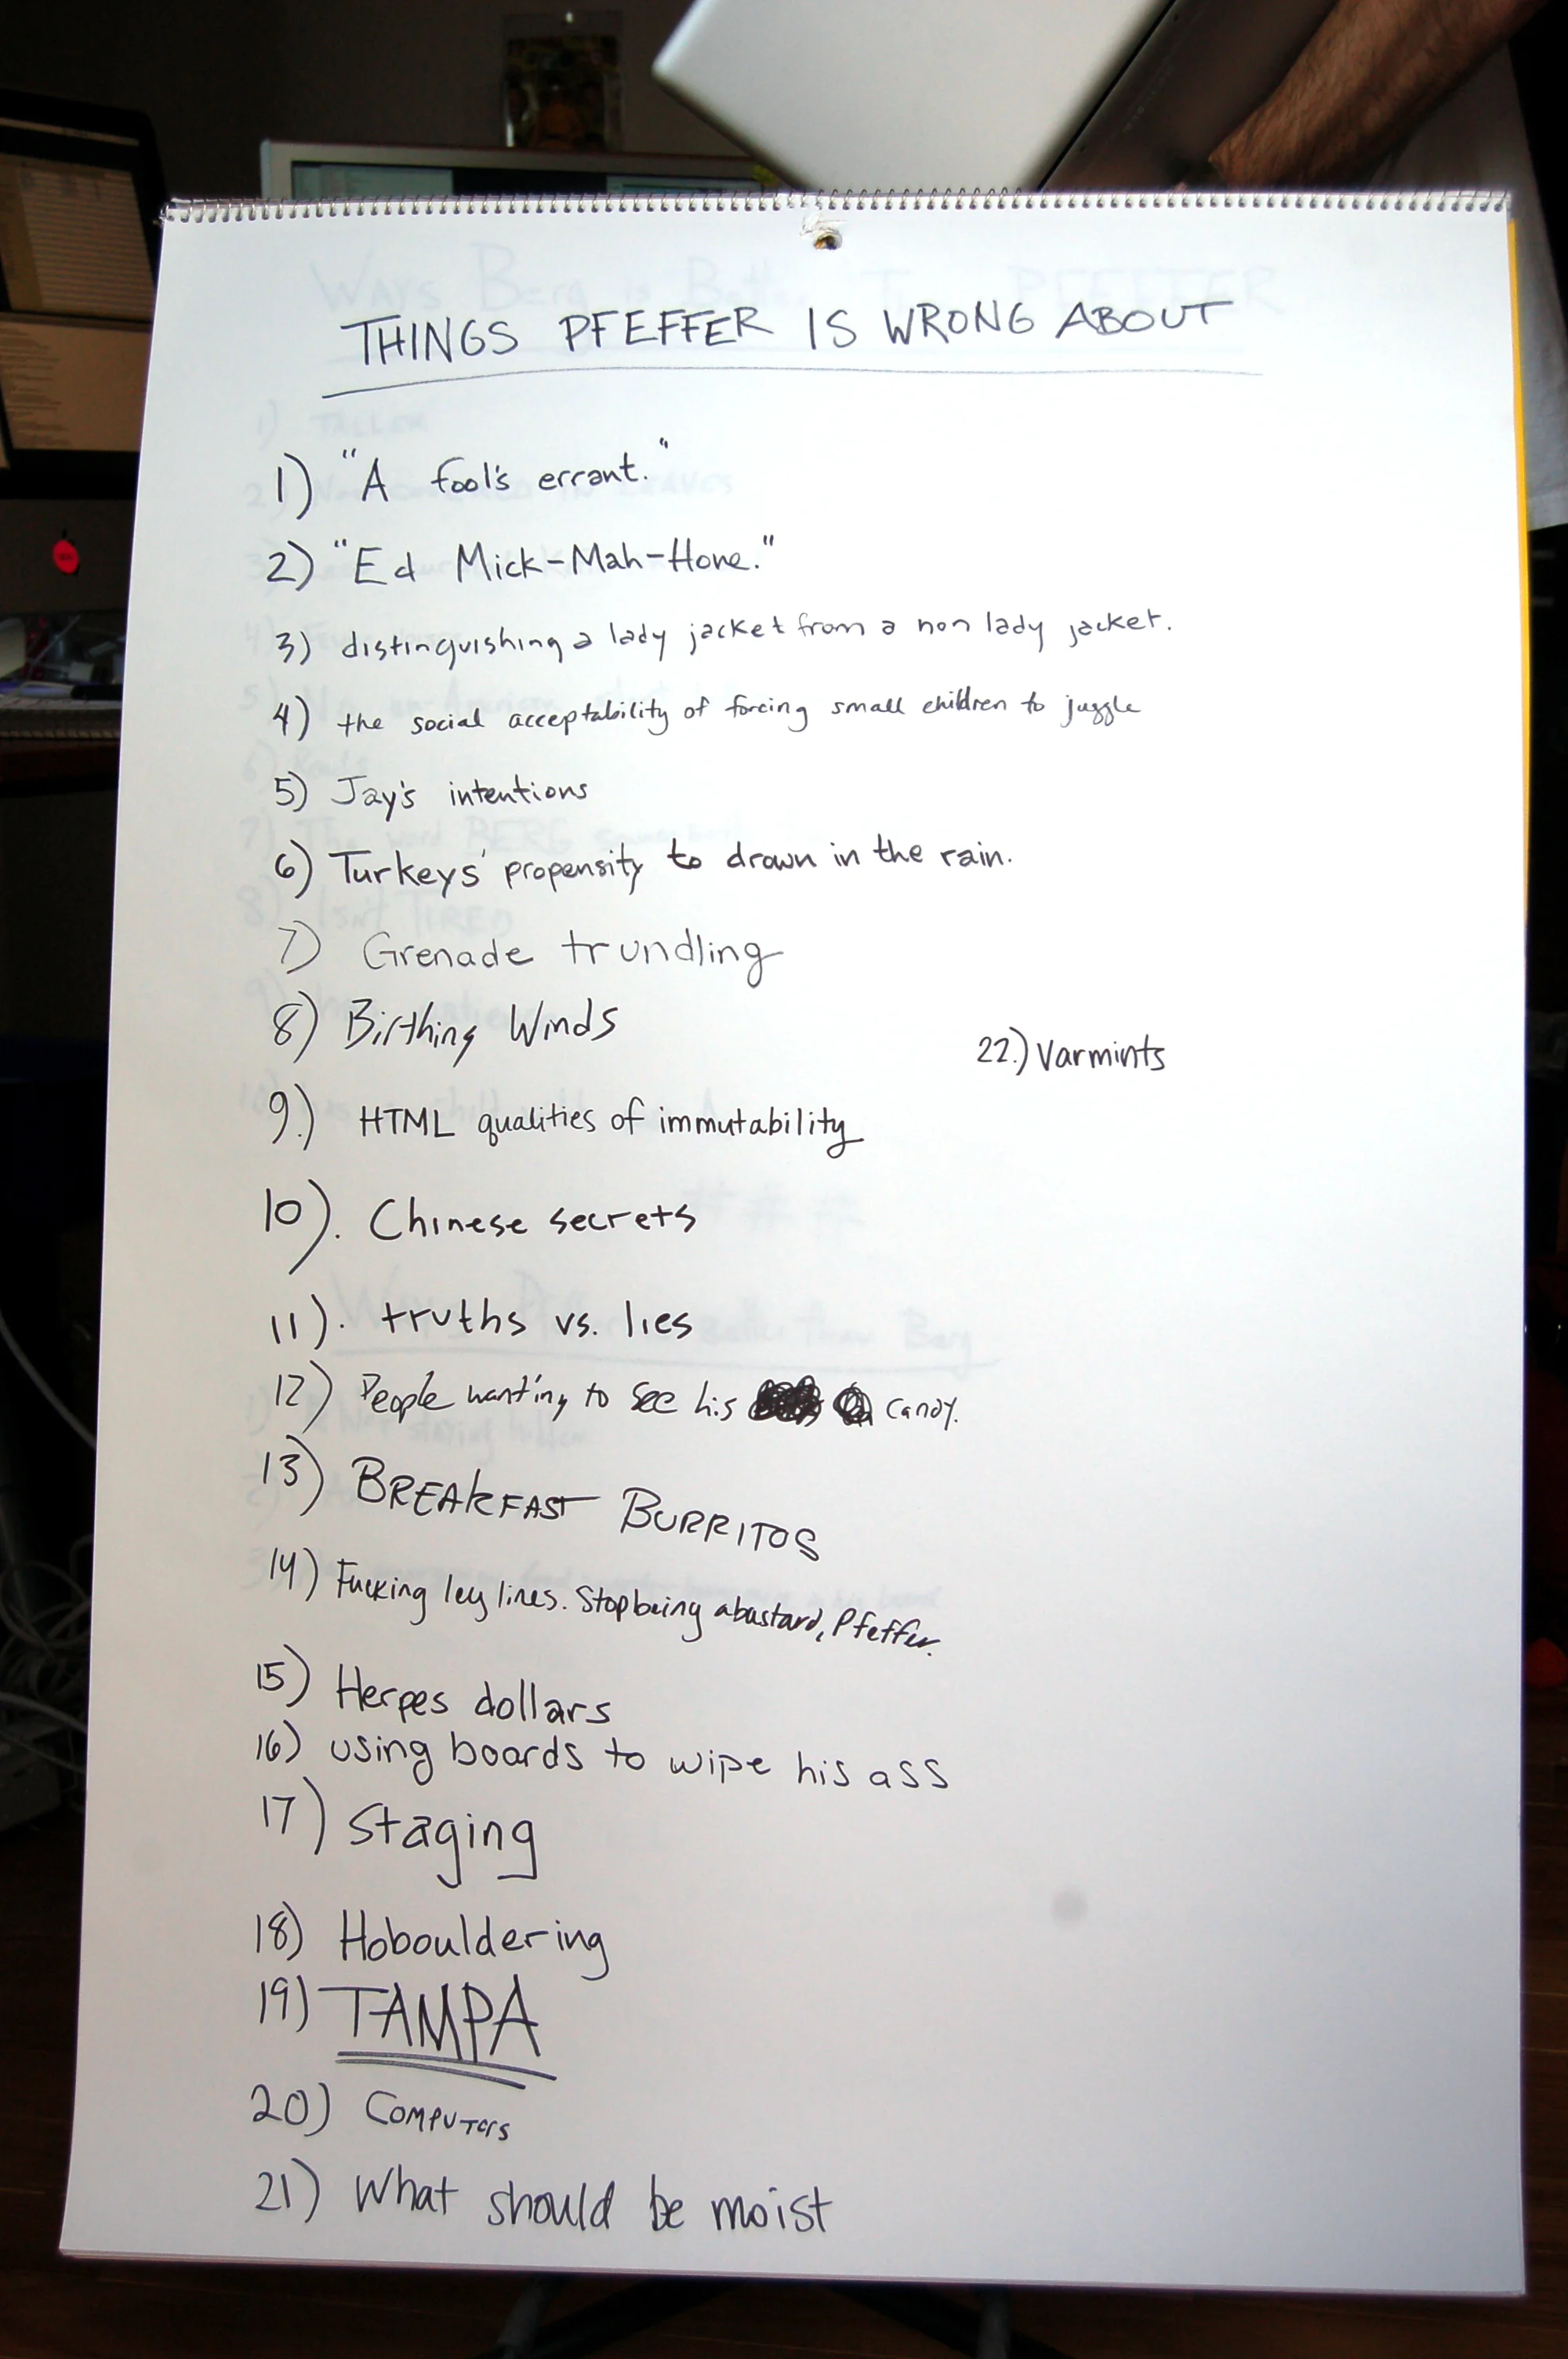 THINGS PFEFFER IS WRONG ABOUT
1) "A fool's errant."
2) "Ed Mick-Mah-Hone."
3) distinguishing a lady jacket from a non lady jacket.
4) the social acceptability of forcing small children to juggle
5) Jay's intentions
6) Turkeys' propensity to drown in the rain.
7) Grenade trundling
8) Birthing Winds
22.) Varmints
9.) HTML qualities of immutability
10). Chinese secrets
11). truths vs. lies
12) People wanting to see his candy.
13) BREAKFAST BURRITOS
14) Fucking ley lines. Stop being a bastard, Pfeffer.
15) Herpes dollars
16) using boards to wipe his ass
17) Staging
18) Hobouldering
19) TAMPA
20) COMPUTERS
21) What should be moist